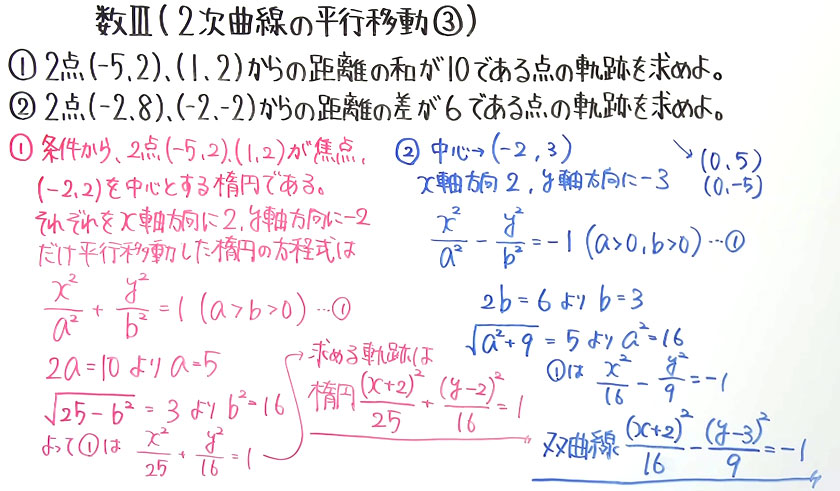 数Ⅲ(2次曲線の平行移動③)
① 2点(-5,2)、(1,2)からの距離の和が10である点の軌跡を求めよ。
② 2点(-2,8)、(-2,-2)からの距離の差が6である点の軌跡を求めよ。
① 条件から、2点(-5,2)、(1,2)が焦点、
(-2,2)を中心とする楕円である。
それぞれをx軸方向に2,y軸方向に-2
だけ平行移動した楕円の方程式は
x²/a² + y²/b² = 1 (a>b>0) …①
2a=10 より a=5
√(25-b²) = 3 より b²=16
よって①は x²/25 + y²/16 = 1
→求める軌跡は
楕円 (x+2)²/25 + (y-2)²/16 = 1
② 中心→(-2,3)
x軸方向2,y軸方向に-3
↘(0,5)
(0,-5)
x²/a² - y²/b² = -1 (a>0,b>0) …①
2b=6 より b=3
√(a²+9) = 5 より a²=16
①は x²/16 - y²/9 = -1
双曲線 (x+2)²/16 - (y-3)²/9 = -1